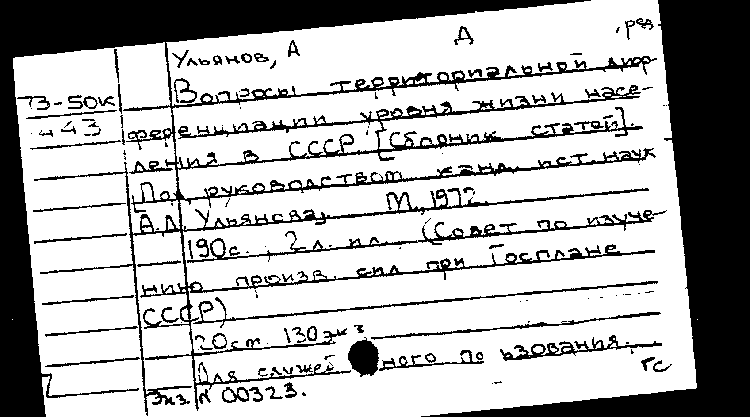 Ульянов, А Д , ред.
73-50К Вопросы территориальной диф-
443 ференциации уровня жизни насе-
ления в СССР. [Сборник статей].
[Под руководством канд. ист. наук
А.Д. Ульянова]. М., 1972.
190с., 2л. ил. (Совет по изуче-
нию произв. сил при Госплане
СССР)
20см. 130экз
Для служеб ного по ьзования.
Экз. N 00323. ГС